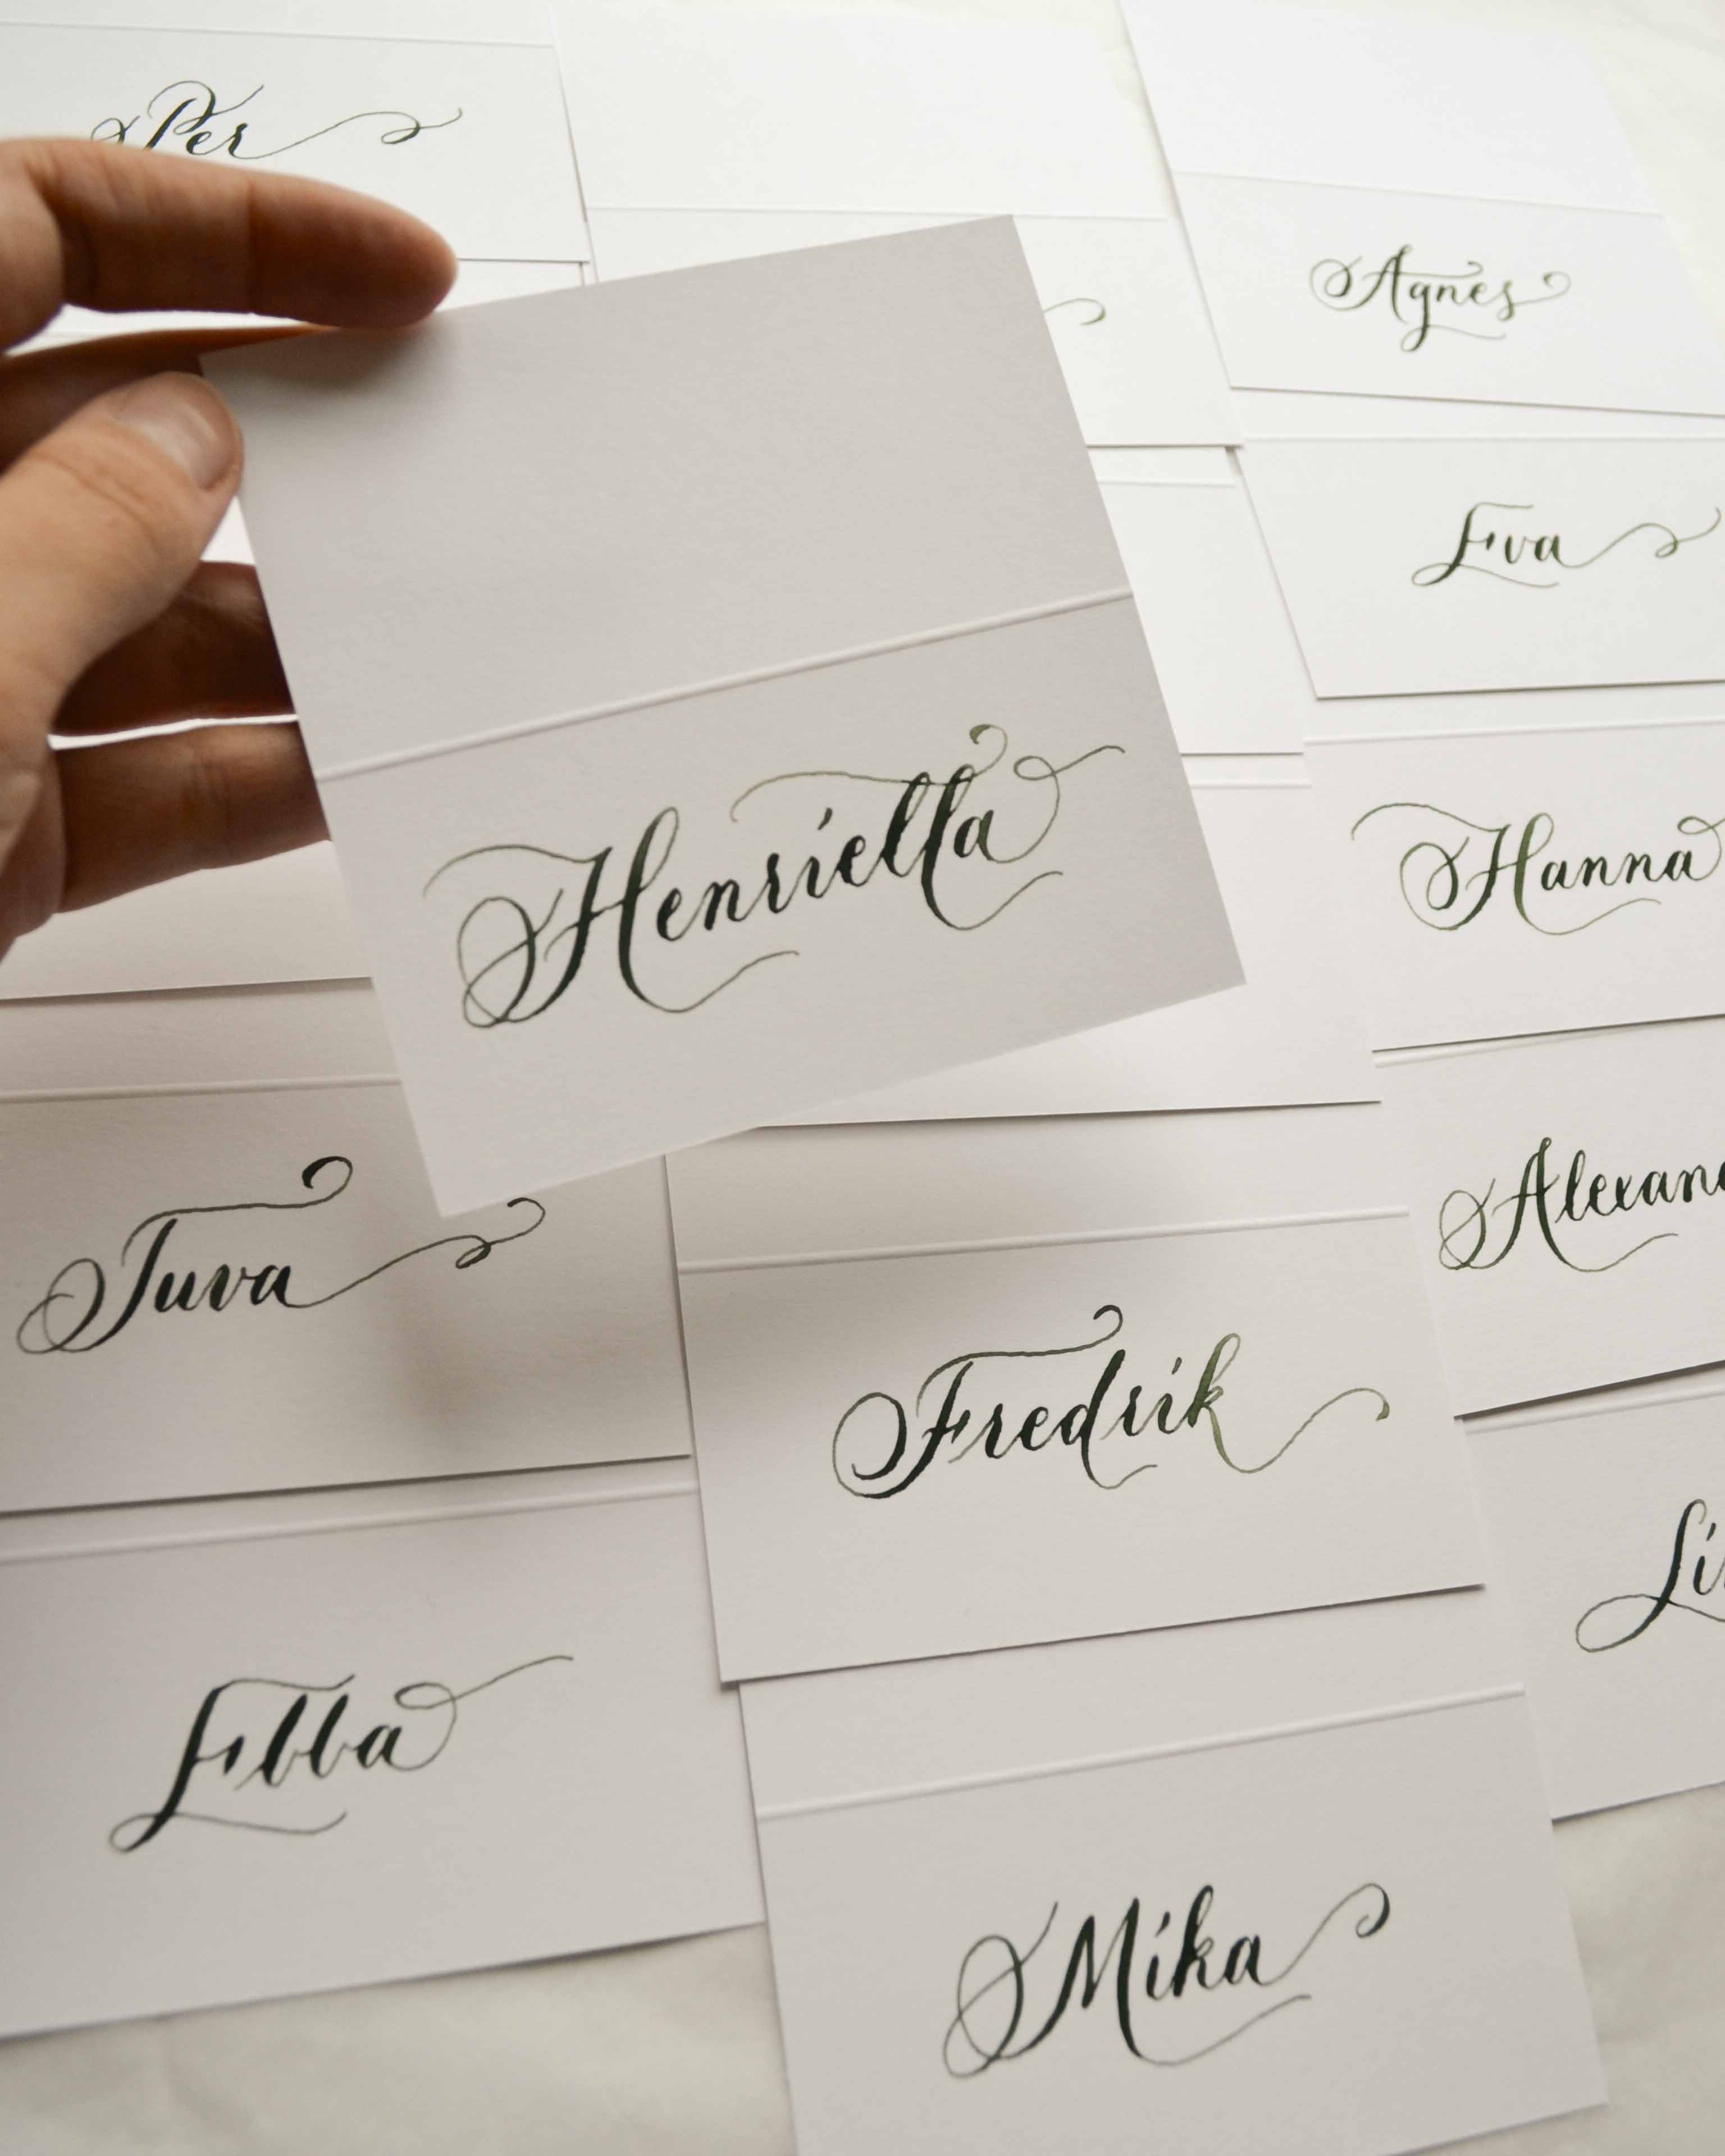 Per
Agnes
Eva
Henrietta
Hanna
Alexan
Tuva
Fredrik
Li
Ebba
Mika